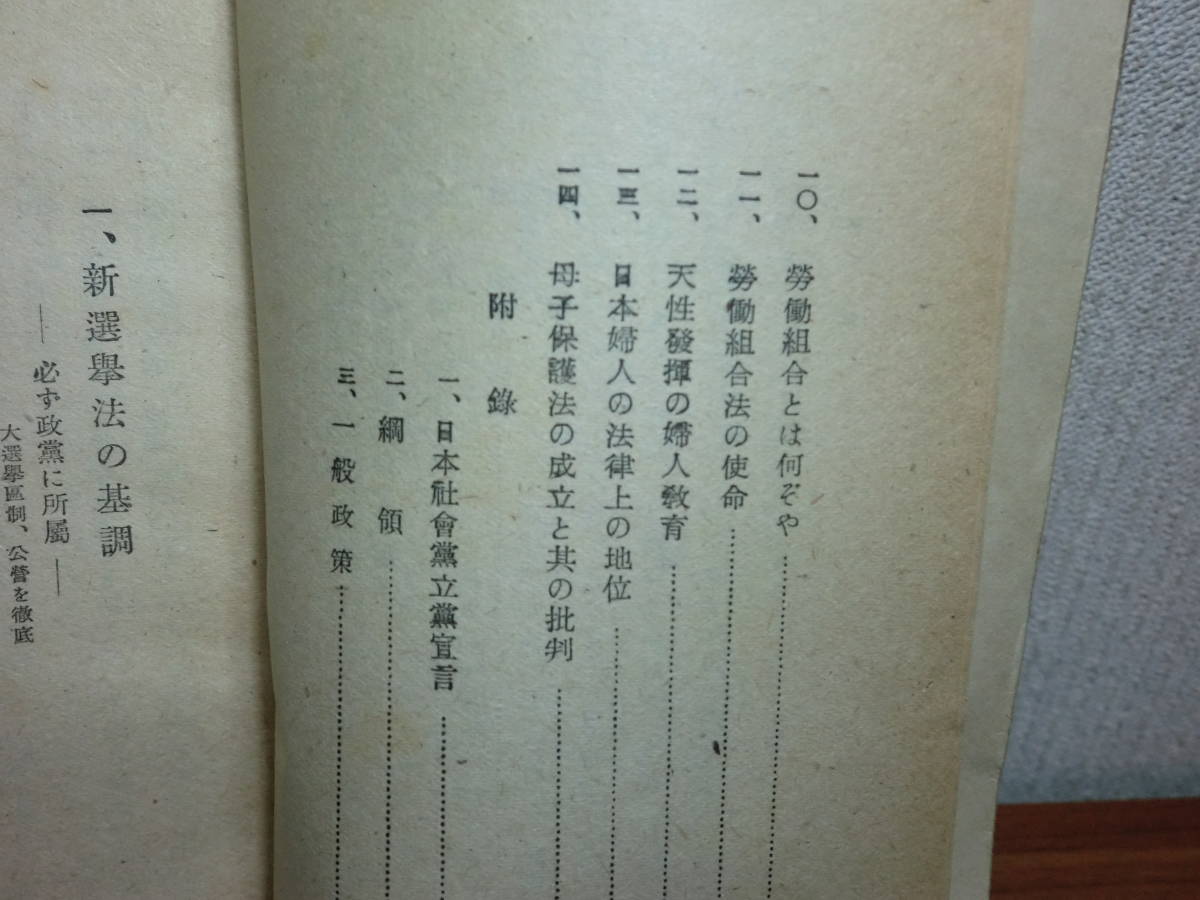 一〇、勞働組合とは何ぞや
一一、勞働組合法の使命
一二、天性發揮の婦人敎育
一三、日本婦人の法律上の地位
一四、母子保護法の成立と其の批判
附錄
一、日本社會黨立黨宣言
二、綱領
三、一般政策
一、新選擧法の基調
―必ず政黨に所屬―
大選擧區制、公營を徹底